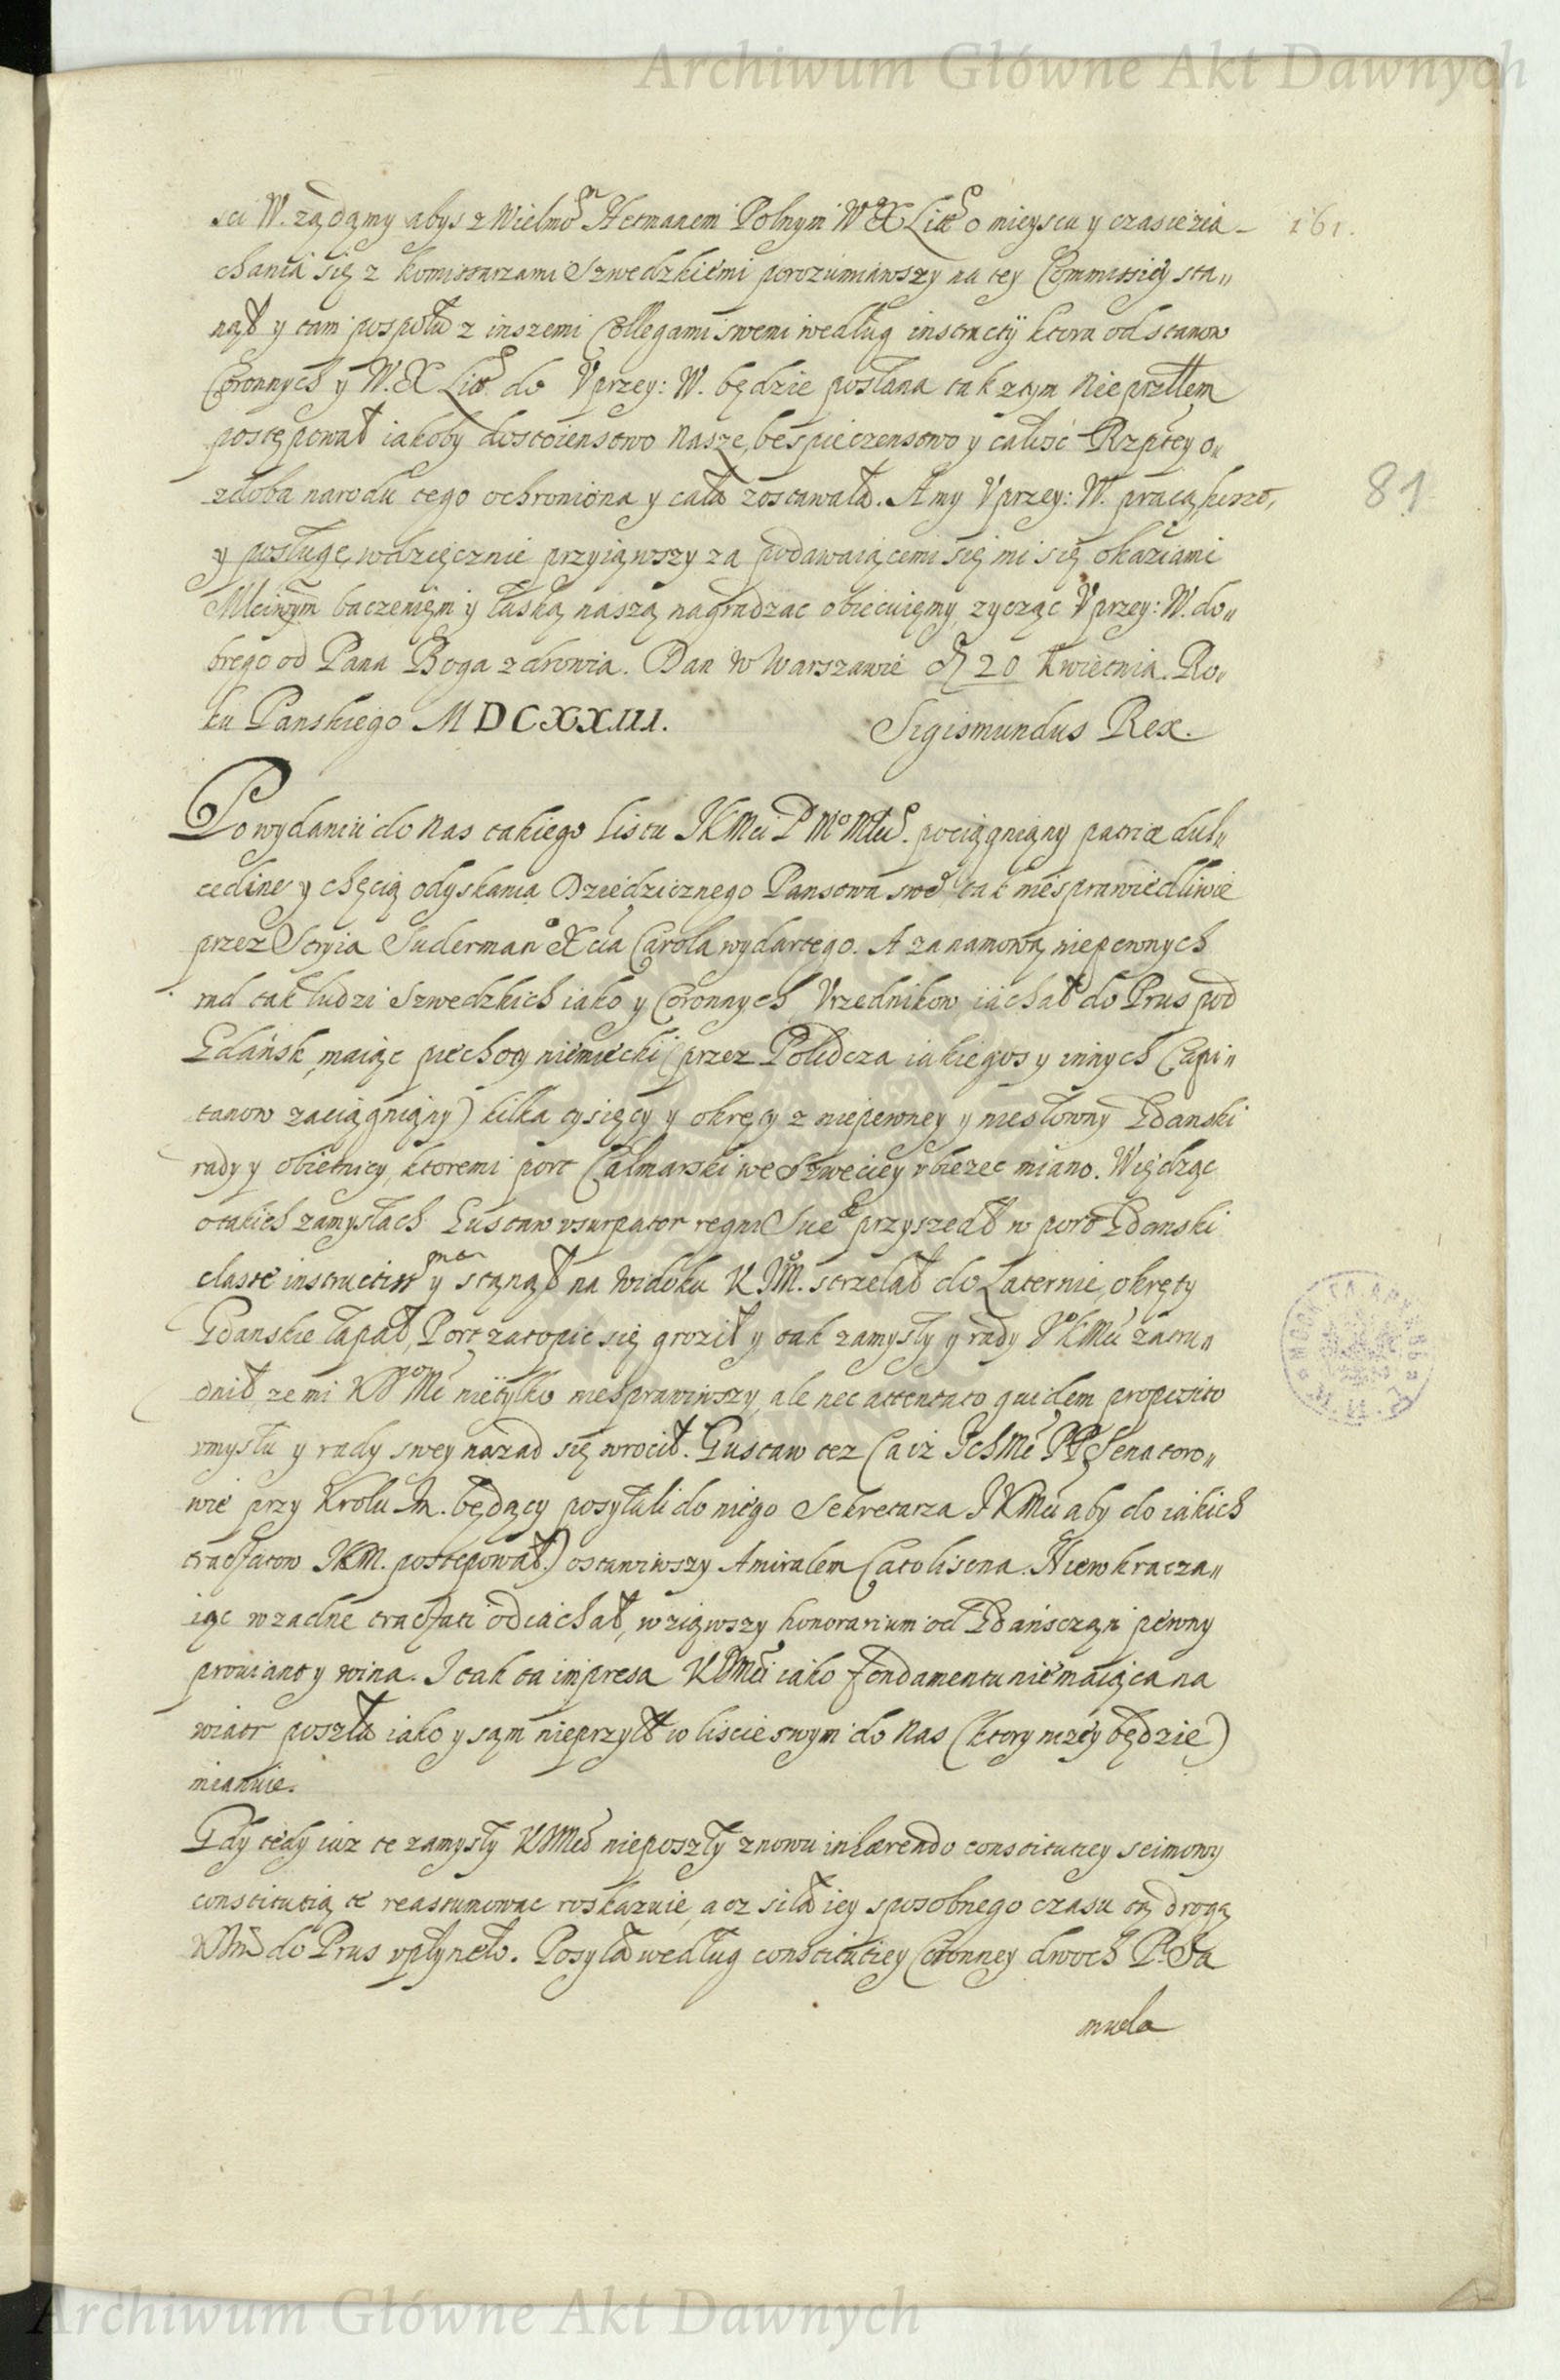 Archiwum Główne Akt Dawnych
sci W. ządamy abys z Wielmo Hetmanem Polnym W X Lit o mieyscu y czasie zia-
161.
chania się z komissarzami Szwedzkiemi porozumiawszy na tey Commissiey sta„
nął y tam pospołu z inszemi Collegami swemi według instructÿ ktora od stanow
Coronnych y W. X Lit do Vprzey: W. będzie posłana tak z tym Nieprztlem
postępował iakoby dostoienstwo Nasze, bespieczenstwo y całosc Rzptey o„
zdoba narodu tego ochroniona y cała zostawała. A my Vprzey: W. pracą, koszt,
81
y posługę wdzięcznie przyiąwszy za podawaiącemi się mi się okaziami
Mlciwym baczeniem y łaską naszą nagradzac obiecuięmy, zycząc Vprzey: W. do„
brego od Pana Boga zdrowia. Dan w Warszawie d 20 kwietnia. Ro„
ku Panskiego MDCXXIII.
Sigismundus Rex.
Po wydaniu do nas takiego listu JKMci P Mo Młu. pociągniony patriæ dul„
cedine y chęcią odyskania Dziedzicznego Panstwa swe tak niesprawiedliwie
przez Stryia Suderman Xcia Carola wydartego. A za namową niepewnych
rad tak ludzi Szwedzkich iako y Coronnych Vrzednikow iachał do Prus pod
Gdańsk, maiąc piechoty niemiecki (przez Polidcza iakiegos y innych Capi„
tanow zaciągniony) kilka tysięcy y okręty z niepewney y niesłowny Gdanski
rady y obietnicy, ktoremi port Calmarski we Szweciey vbiezec miano. Wiedząc
o takich zamysłach Gustaw vsurpator regni Sue przyszedł w port Gdanski
classe instructiss y stanął na widoku K JM. strzelał do Laternie, okręty
Gdanskie łapał, Port zatopic się groził y tak zamysły y rady KMci zatru„
dnił, ze mi K Mci nietylko niesprawiwszy, ale nec attentato quidem proposito
vmysłu y rady swey nazad się wrocił. Gustaw tez (aiz IchMc PP Senatoro„
wie przy Krolu Jm. będący posyłali do niego Sekretarza JKMci aby do iakich
tractatow JKM. postępował.) ostawiwszy Amiralem Carolisena. Niewkracza„
iąc w zadne tractati odiachał, wziąwszy honorarium od Gdanscząn pewny
prowiant y wina. I tak ta impresa KJMci iako fondamentu nie maiąca na
wiatr poszła iako y sąm nieprzył w liscie swym do nas (ktory nizey będzie)
mianuie.
Gdy tedy iuz te zamysły KJMci nieposzły znowu inhærendo constitutiey seimowy
constitutią te reassumowac roskazuie, acz siła iey sposobnego czasu tą drogą
KJM do Prus vpłynęło. Posyła według constitutiey Coronney dwoch P. Sa
muela
Archiwum Główne Akt Dawnych